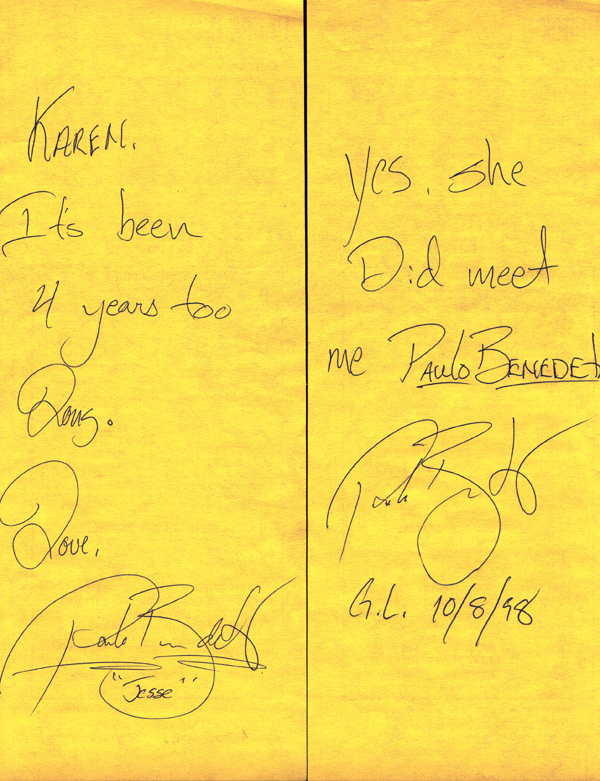 KAREN.
It's been
4 years too
Long.
Love,
Paulo Benedeti
"Jesse"
Yes, she
Did meet
me PAULO BENEDET
Paulo Benedeti
G.L. 10/8/98